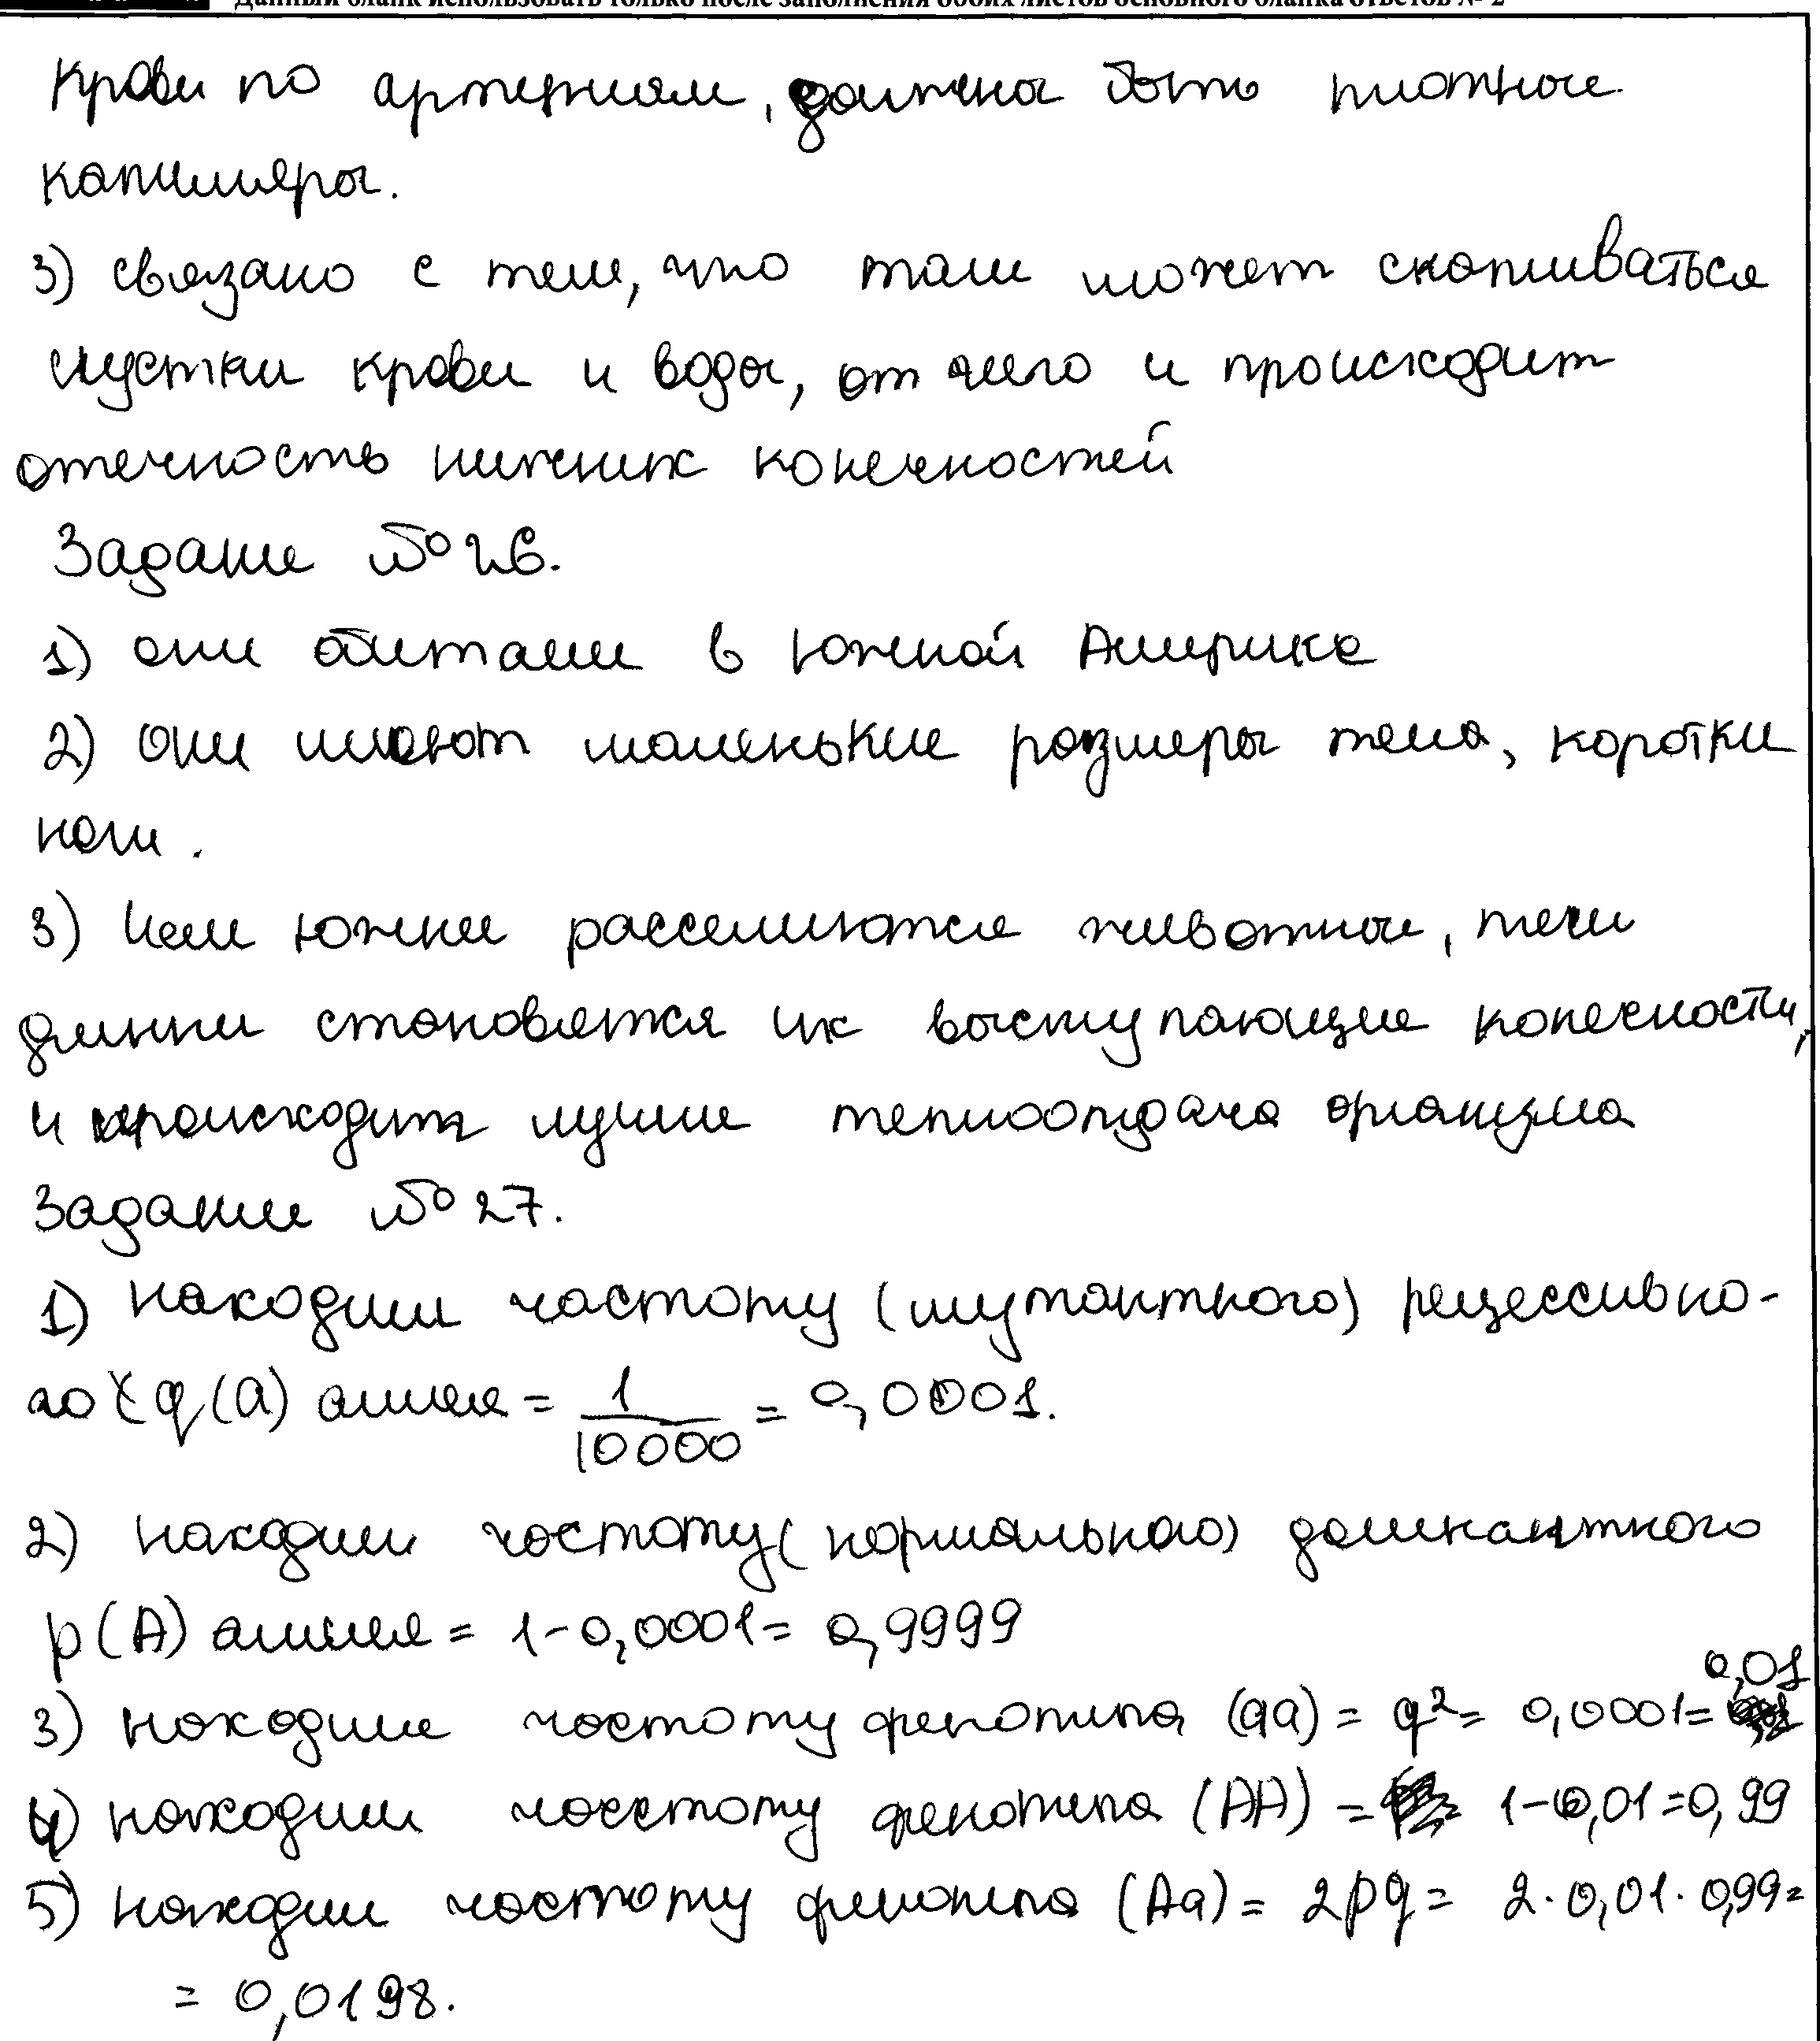 Данный бланк использовать только после заполнения обоих листов основного бланка ответов № 2
крови по артериям, должны быть плотные
капилляры.
3) связано с тем, что там может скапливаться
сгустки крови и воды, от чего и происходит
отечность нижних конечностей
Задание №26.
1) они обитали в Южной Америке
2) они имеют маленькие размеры тела, коротки
ноги.
3) Чем южнее расселяются животные, тем
длинни становятся их выступающие конечности,
и происходит лучше теплоотдача организма
Задание №27.
1) находим частоту (мутантного) рецессивно-
го q(a) аллеля = 1/10000 = 0,0001.
2) находим частоту (нормального) доминантного
p(A) аллеля = 1-0,0001= 0,9999
3) находим частоту фенотипа (aa) = q²= 0,0001= 0,01
4) находим частоту фенотипа (AA) = 1-0,01=0,99
5) находим частоту фенотипа (Aa) = 2pq = 2·0,01·0,99=
= 0,0198.